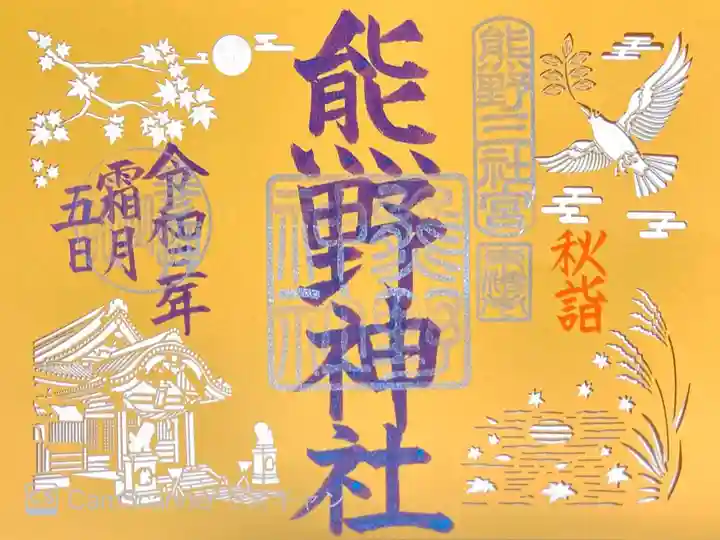 熊野三社宮
秋詣
熊野神社
令和二年
霜月
五日